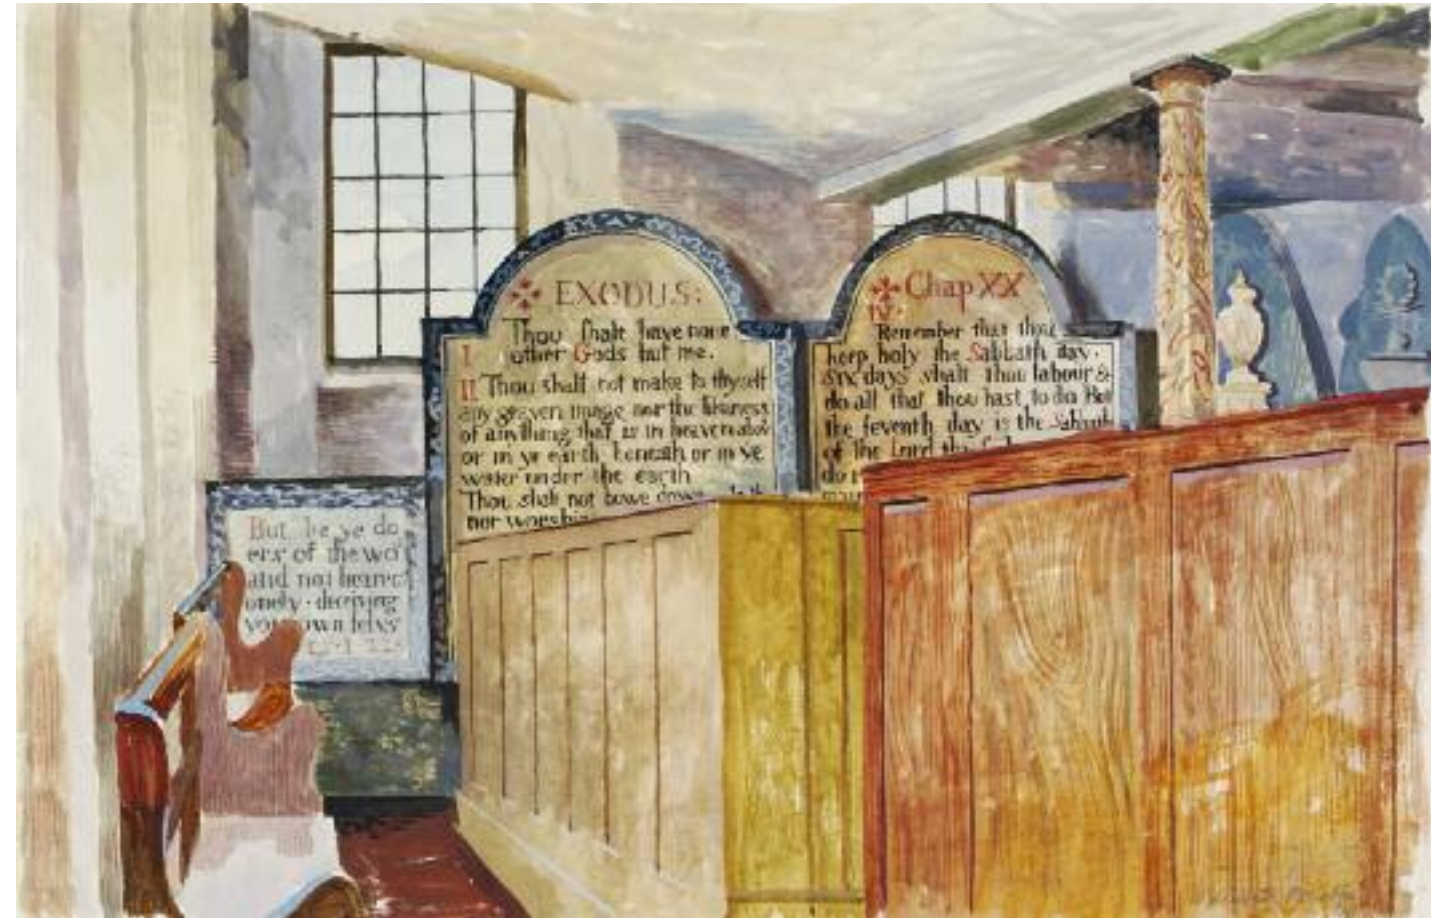 EXODUS:
I Thou shalt have none
other Gods but me.
II Thou shalt not make to thyself
any graven image nor the likeness
of anything that is in heaven above
or in ye earth beneath or in ye
water under the earth
Thou shalt not bowe down
nor worship
Chap XX
IV.
Remember that thou
keep holy the Sabbath day.
six days shalt thou labour &
do all that thou hast to do But
the seventh day is the Sabbath
of the Lord
But be ye do
ers of the wo
and not hearer
onely deceiving
your own selvs